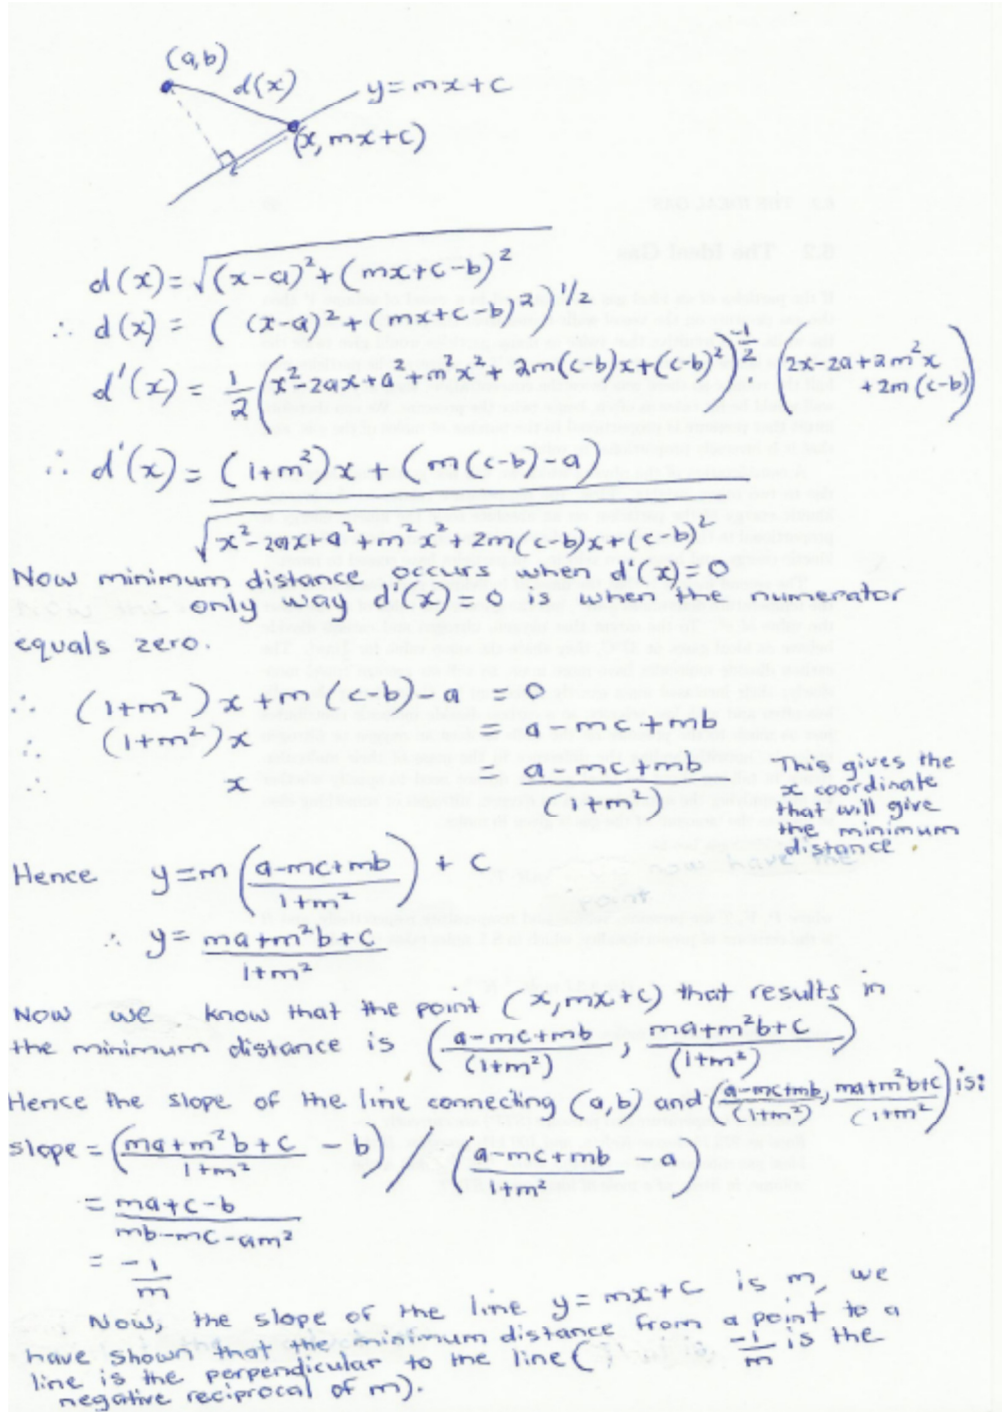 (a,b)
d(x)
y=mx+c
(x, mx+c)
d(x) = √((x-a)²+(mx+c-b)²)
∴ d(x) = ((x-a)²+(mx+c-b)²)^1/2
d'(x) = 1/2 (x²-2ax+a²+m²x²+2m(c-b)x+(c-b)²)^-1/2 . (2x-2a+2m²x+2m(c-b))
∴ d'(x) = ((1+m²)x + (m(c-b)-a)) / √(x²-2ax+a²+m²x²+2m(c-b)x+(c-b)²)
Now minimum distance occurs when d'(x)=0
only way d'(x)=0 is when the numerator
equals zero.
∴ (1+m²)x+m(c-b)-a = 0
∴ (1+m²)x = a-mc+mb
∴ x = (a-mc+mb)/(1+m²)
This gives the
x coordinate
that will give
the minimum
distance.
Hence y=m((a-mc+mb)/(1+m²)) + c
∴ y= (ma+m²b+c)/(1+m²)
Now we know that the point (x, mx+c) that results in
the minimum distance is ((a-mc+mb)/(1+m²), (ma+m²b+c)/(1+m²))
Hence the slope of the line connecting (a,b) and ((a-mc+mb)/(1+m²), (ma+m²b+c)/(1+m²)) is:
slope = ((ma+m²b+c)/(1+m²) - b) / ((a-mc+mb)/(1+m²) - a)
= (ma+c-b)/(mb-mc-am²)
= -1/m
Now, the slope of the line y=mx+c is m, we
have shown that the minimum distance from a point to a
line is the perpendicular to the line ( -1/m is the
negative reciprocal of m).